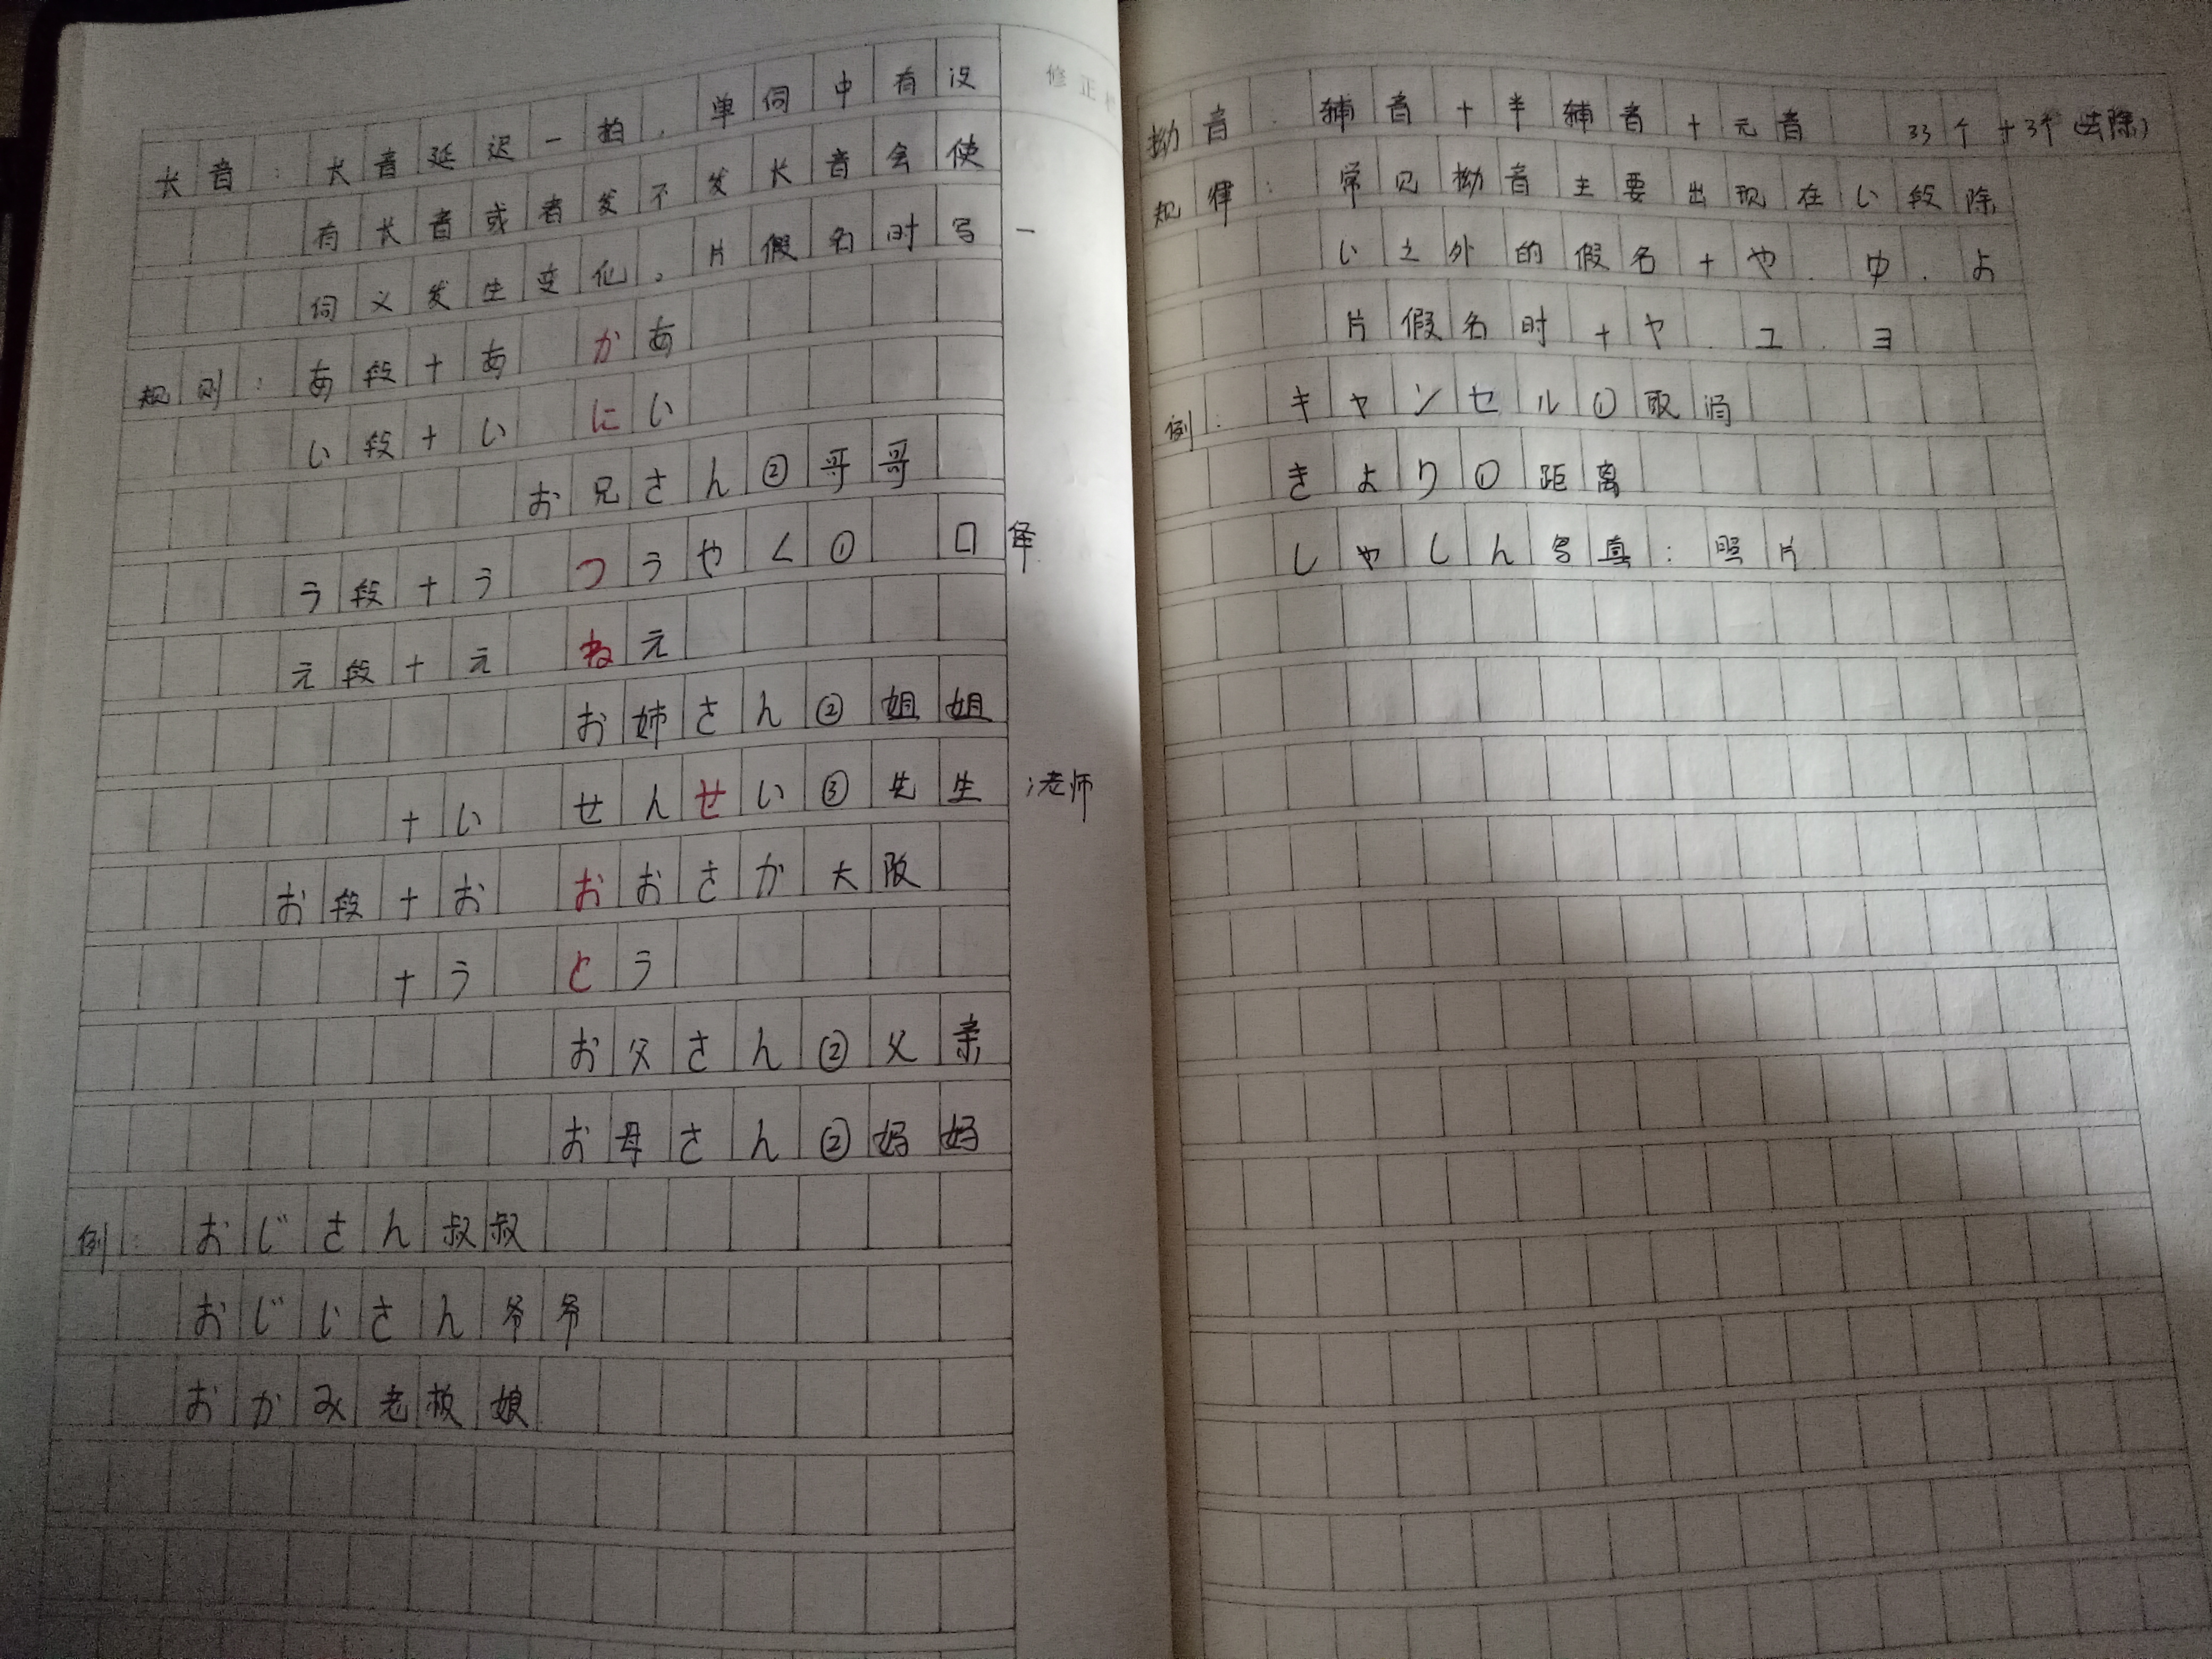 修正
长音：长音延迟一拍，单词中有没
有长音或者发不发长音会使
词义发生变化。片假名时写 ー
规则：あ段＋あ かあ
い段＋い にい
お兄さん②哥哥
う段＋う つうやく① 口译
え段＋え ねえ
お姉さん②姐姐
＋い せんせい③先生；老师
お段＋お おおさか大阪
＋う とう
お父さん②父亲
お母さん②妈妈
例：おじさん叔叔
おじいさん爷爷
おかみ老板娘
拗音：辅音＋半辅音＋元音 33个＋3个(去除)
规律：常见拗音主要出现在い段除
い之外的假名＋や.ゆ.よ
片假名时＋ヤ.ユ.ヨ
例：キャンセル①取消
きより①距离
しゃしん写真：照片